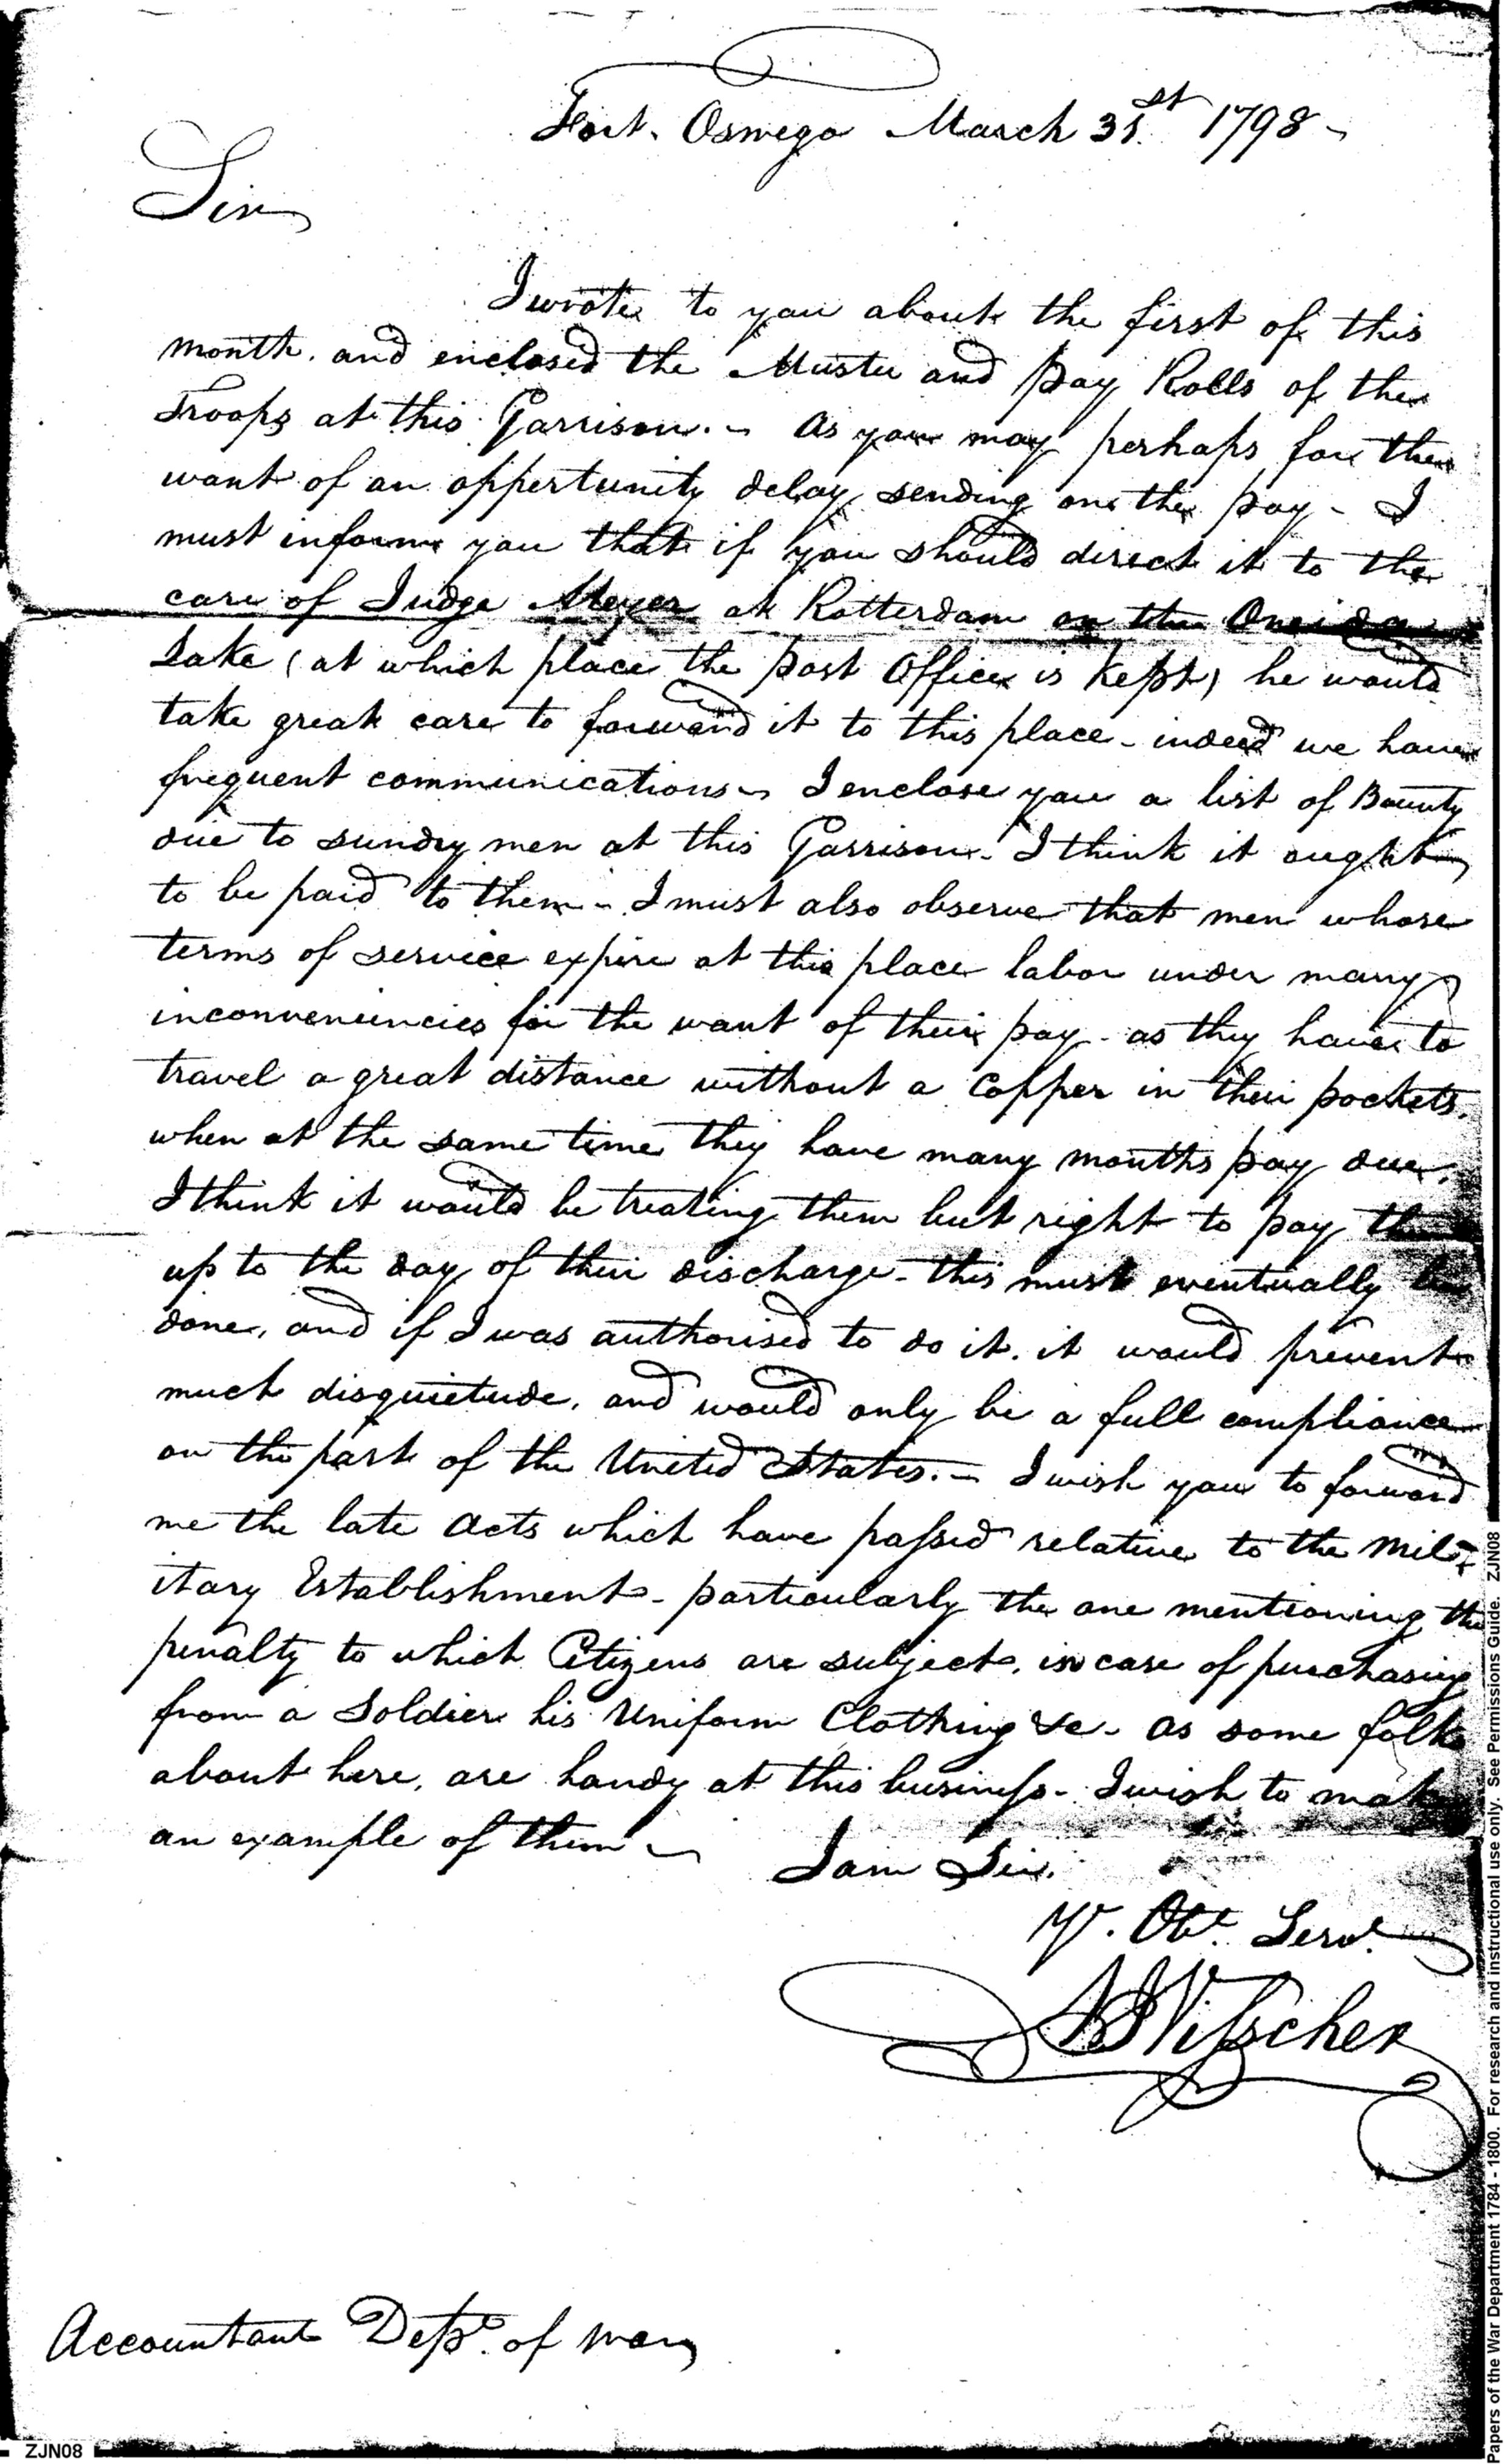 Fort. Oswego March 31.st 1798 -
Sir
I wrote to you about the first of this
month. and enclosed the Muster and Pay Rolls of the
Troops at this Garrison. - As you may perhaps for the
want of an oppertunity delay sending on the pay - I
must inform you that if you should direct it to the
care of Judge Meyer at Rotterdam on the Oneida
Lake (at which place the post Office is kept) he would
take great care to forward it to this place - indeed we have
frequent communications - I enclose you a list of Bounty
due to sundry men at this Garrison - I think it ought
to be paid to them - I must also observe that men whose
terms of service expire at this place labor under many
inconveniencies for the want of their pay - as they have to
travel a great distance without a Copper in their pockets.
when at the same time they have many months pay due.
I think it would be treating them but right to pay them
up to the day of their discharge - this must eventually be
done, and if I was authorised to do it. it would prevent
much disquietude, and would only be a full compliance
on the part of the United States. - I wish you to forward
me the late Acts which have passed relative to the Mil-
itary Establishment - particularly the one mentioning the
penalty to which Citizens are subject, in case of purchasing
from a Soldier his Uniform Clothing &c - as some folks
about here, are handy at this business - I wish to make
an example of them -
I am Sir.
Yr. Obt. Servt.
Visscher
Accountant Dept. of War
ZJN08
Papers of the War Department 1784 - 1800. For research and instructional use only. See Permissions Guide. ZJN08